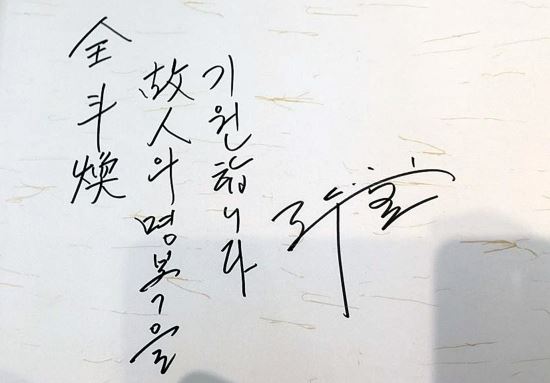 全斗煥
故人의 명복을
기원합니다